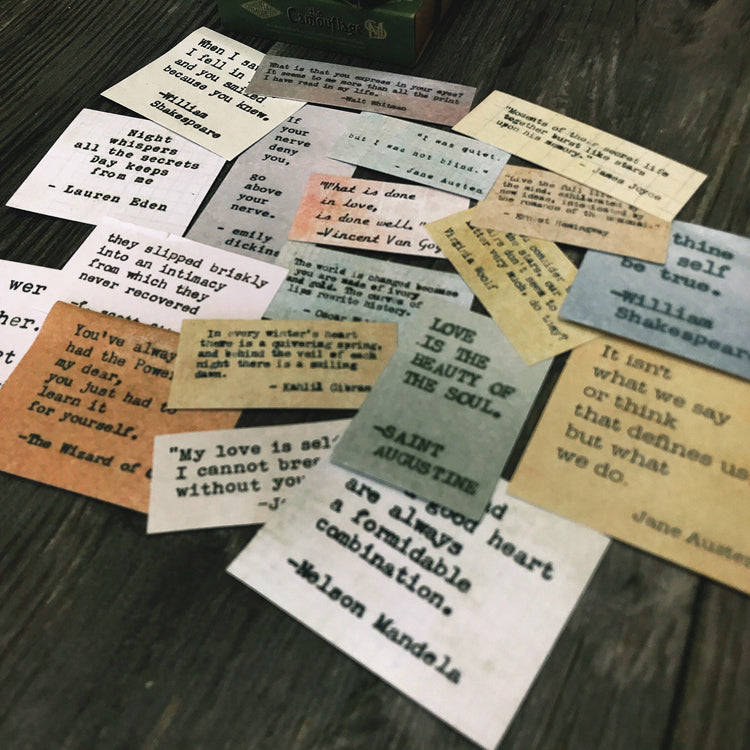 the
Camouflage
When I sa
I fell in
and you smiled
because you knew.
-William
Shakespeare
What is that you express in your eyes?
It seems to me more than all the print
I have read in my life.
-Walt Whitman
"Moments of their secret life
together burst like stars
upon his memory.- James Joyce
Night
whispers
all the secrets
Day keeps
from me
- Lauren Eden
If
your
nerve
deny
you,
go
above
your
nerve.
- emily
dickins
"I was quiet,
but I was not blind."
- Jane Austen
"What is done
in love,
is done well."
-Vincent Van Gog
"Live the full life of
the mind, exhilarated by
new ideas, intoxicated by
the romance of the unusual."
- Ernest Hemingway
thine
self
be true.
-William
Shakespear
they slipped briskly
into an intimacy
from which they
never recovered
The world is changed because
you are made of ivory
and gold. The curves of
your lips rewrite history.
- Oscar
consider
the stars, our
don't seem to
matter very much, do they?
Virginia Woolf
wer
her.
et
You've alway
had the Power
my dear,
you just had to
learn it
for yourself.
-The Wizard of
In every winter's heart
there is a quivering spring,
and behind the veil of each
night there is a smiling
dawn.
- Kahlil Gibran
LOVE
IS THE
BEAUTY OF
THE SOUL.
-SAINT
AUGUSTINE
It isn't
what we say
or think
that defines us
but what
we do.
Jane Austen
"My love is sel
I cannot brea
without you
-J
d
good heart
are always
a formidable
combination.
-Nelson Mandela